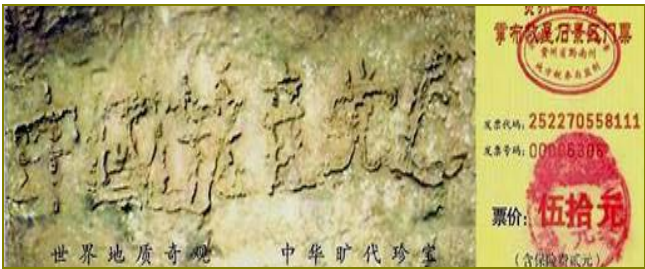 中國共产党亡
世界地质奇观 中华旷代珍宝
景区门票
贵州省黔南州
发票代码: 252270558111
发票号码: 00006306
票价: 伍拾元
(含保险费贰元)